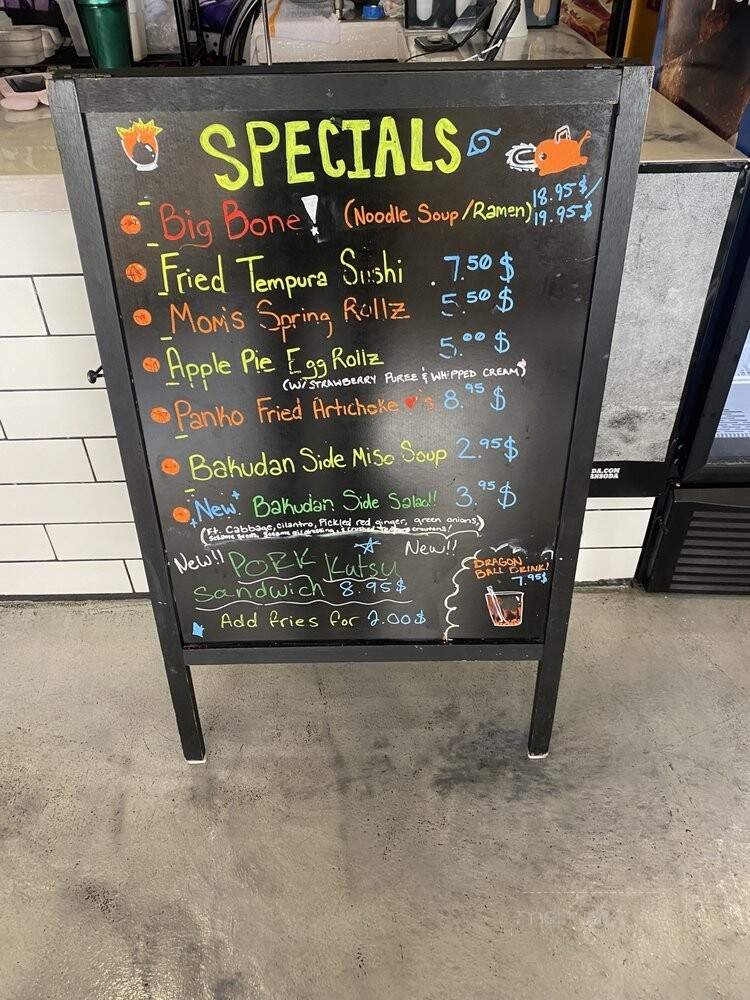 SPECIALS
Big Bone! (Noodle Soup/Ramen) 18.95$/
19.95$
Fried Tempura Sushi 7.50 $
Mom's Spring Rollz 5.50 $
Apple Pie Egg Rollz 5.00 $
(W/ STRAWBERRY PUREE & WHIPPED CREAM)
Panko Fried Artichoke ♥'s 8.95 $
Bakudan Side Miso Soup 2.95$
New Bakudan Side Salad!! 3.95 $
(Ft. Cabbage, cilantro, Pickled red ginger, green onions,
Sesame seeds, Sesame oil dressing, & crushed
New!! PORK Kutsu New!!
Sandwich 8.95$
Add fries for 2.00$
DRAGON
BALL DRINK!
7.95$
DA.COM
ENSODA